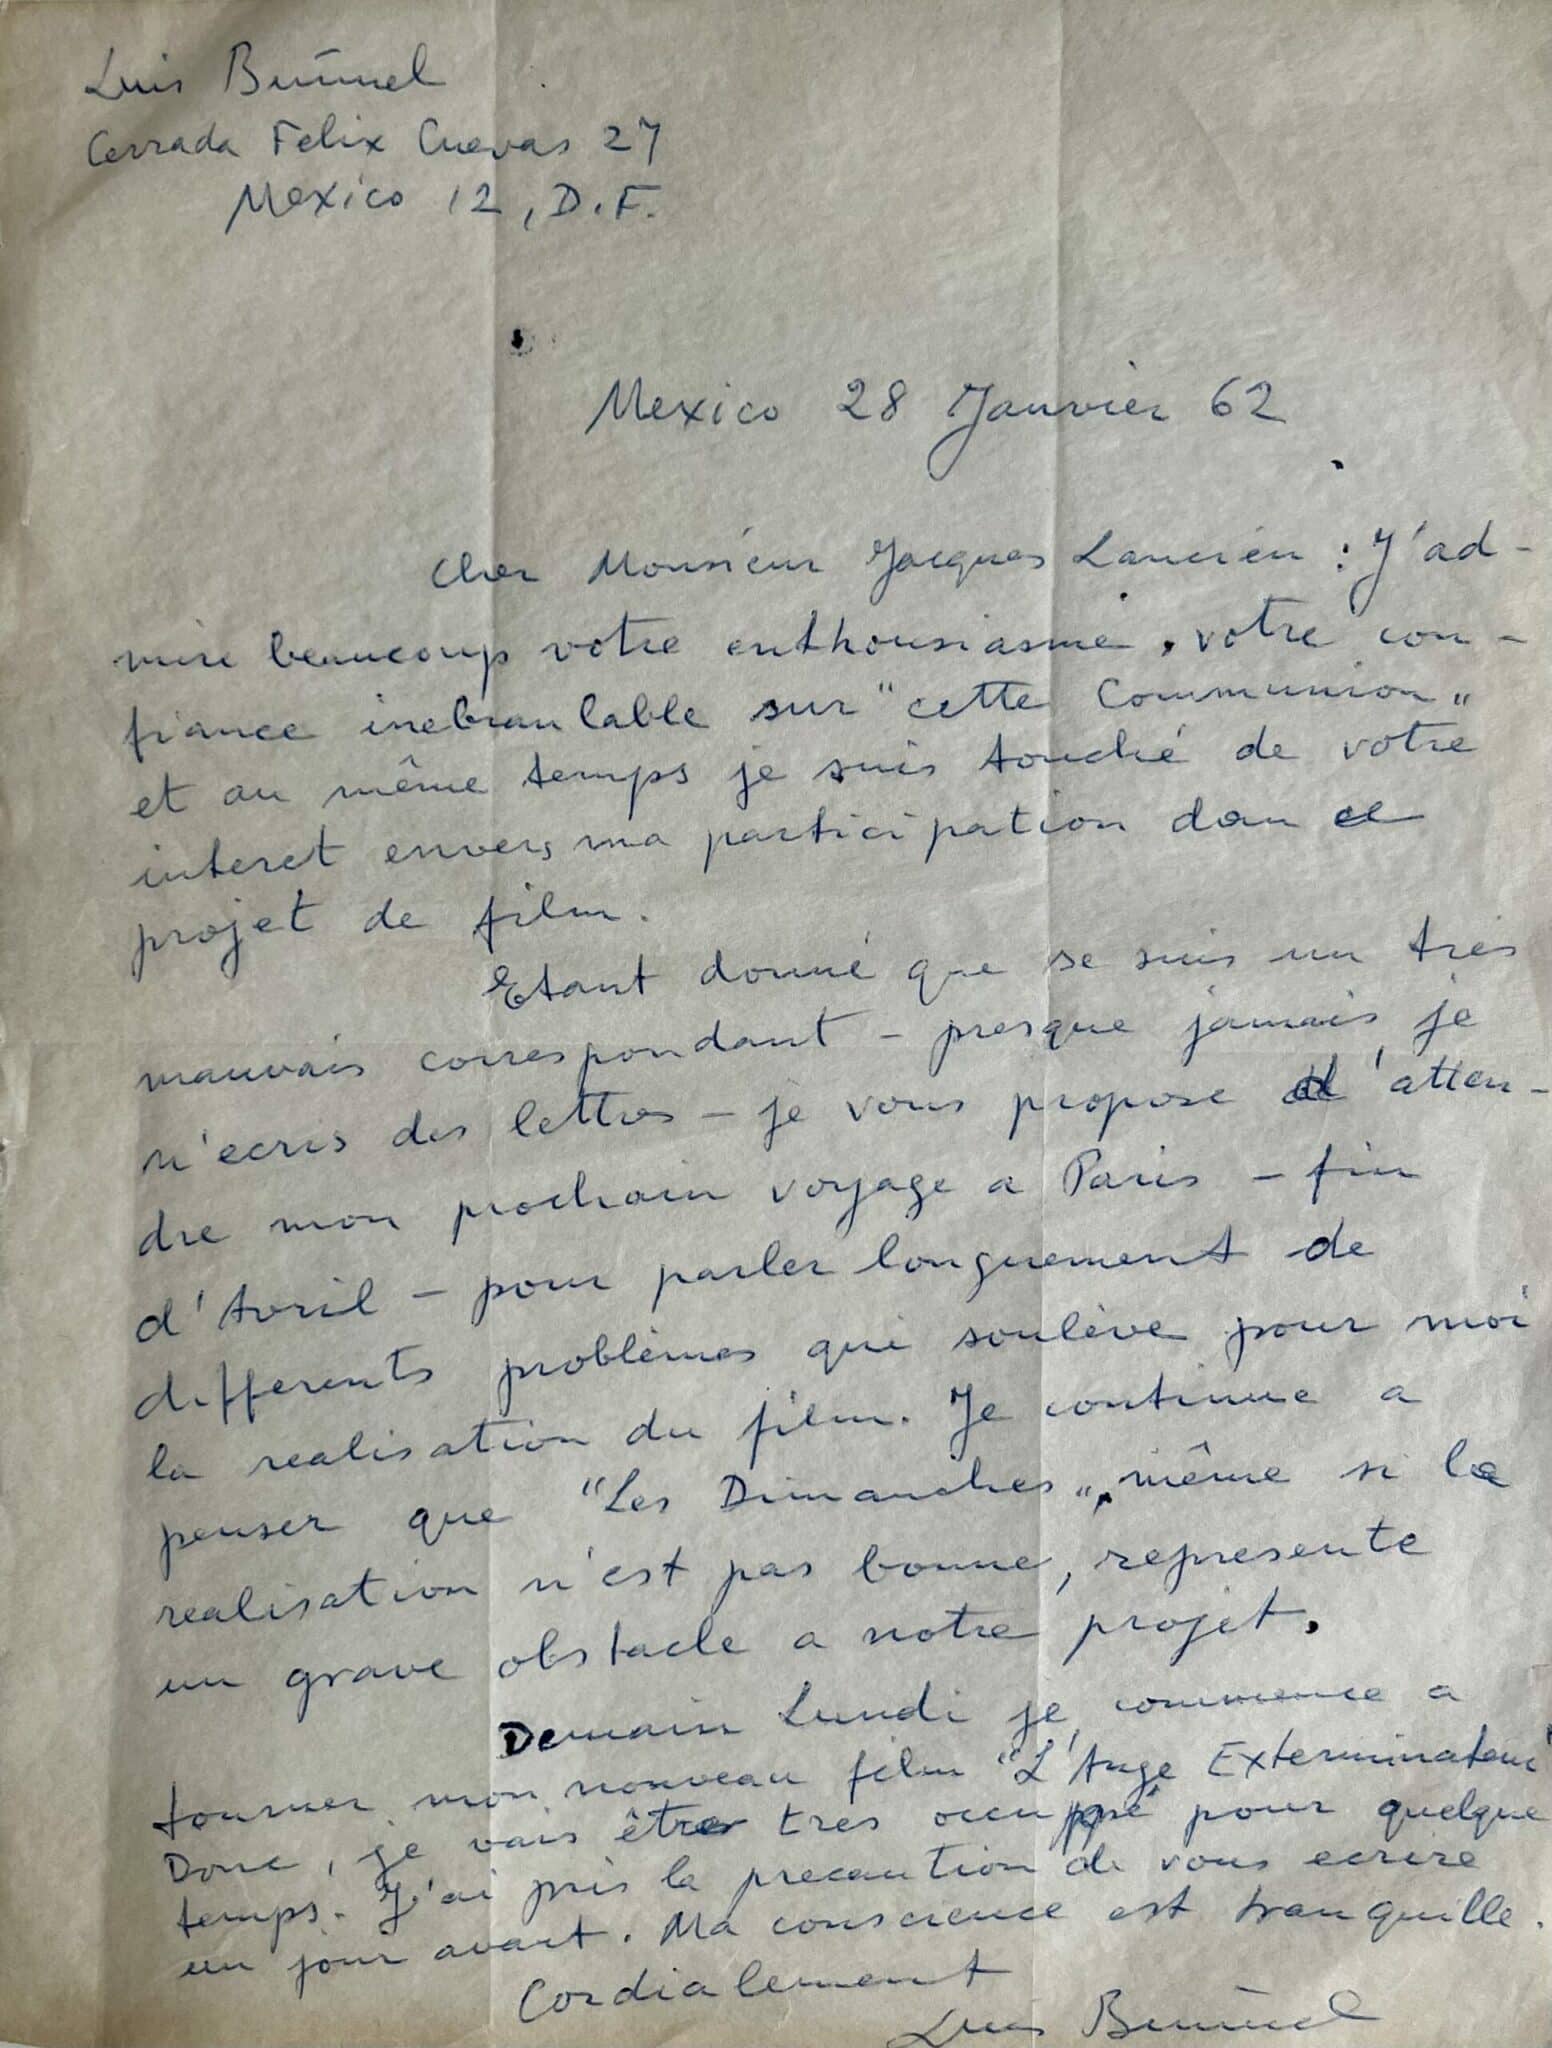 Luis Buñuel
Cerrada Felix Cuevas 27
Mexico 12, D.F.
Mexico 28 Janvier 62
Cher Monsieur Jacques Lancien : J'ad-
mire beaucoup votre enthousiasme, votre con-
fiance inebranlable sur "cette Communion"
et au même temps je suis touché de votre
interet envers ma participation dan ce
projet de film.
Etant donné que je suis un tres
mauvais correspondant – presque jamais je
n'ecris des lettres – je vous propose d'atten-
dre mon prochain voyage a Paris – fin
d'Avril – pour parler longuement de
differents problèmes que soulève pour moi
la realisation du film. Je continue a
penser que "Les Dimanches", même si la
realisation n'est pas bonne, represente
un grave obstacle a notre projet.
Demain Lundi je commence a
tourner mon nouveau film "L'Ange Exterminateur"
Donc, je vais être tres occupé pour quelque
temps. J'ai pris la precaution de vous ecrire
un jour avant. Ma conscience est tranquille.
Cordialement
Luis Buñuel